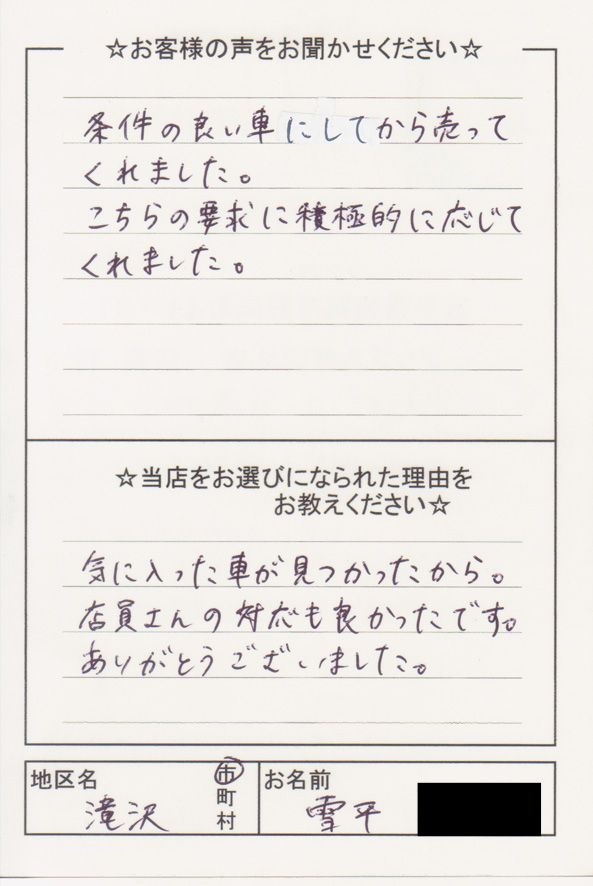 ☆お客様の声をお聞かせください☆
条件の良い車にしてから売って
くれました。
こちらの要求に積極的に応じて
くれました。
☆当店をお選びになられた理由を
お教えください☆
気に入った車が見つかったから。
店員さんの対応も良かったです。
ありがとうございました。
地区名 滝沢 市 町 村
お名前 雪平